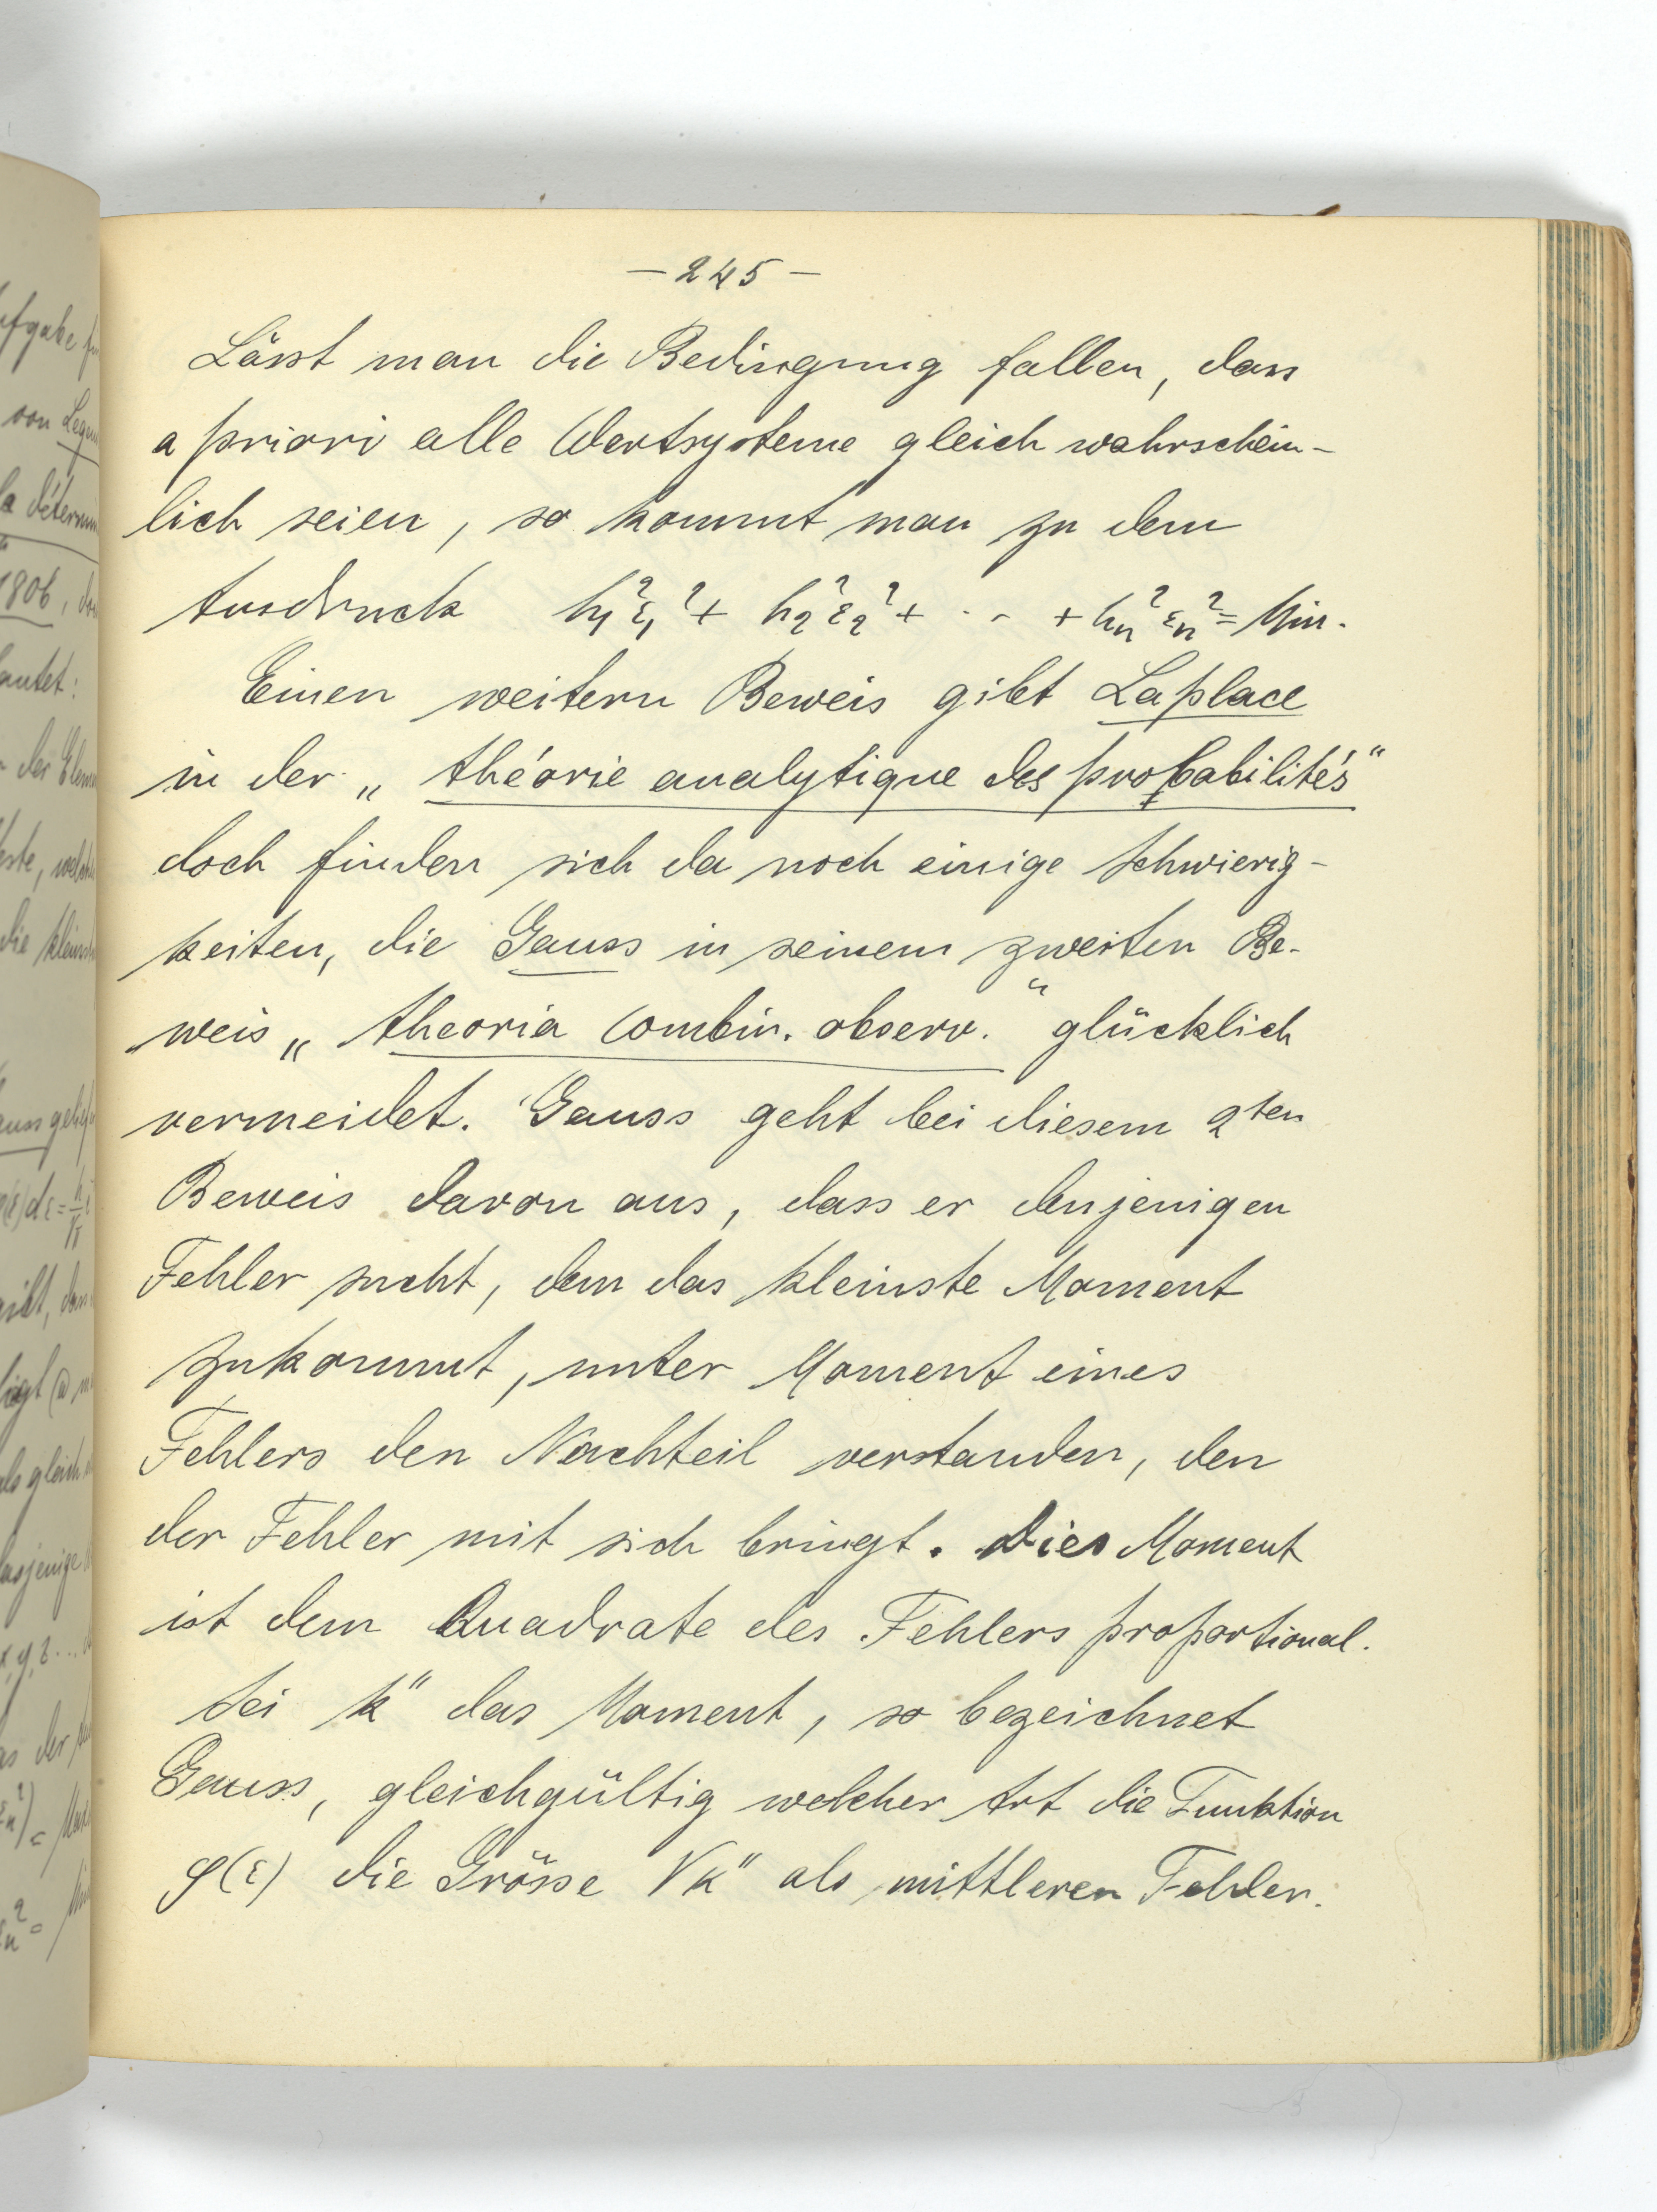 – 245 –
Lässt man die Bedingung fallen, dass
a priori alle Wertsysteme gleich wahrschein-
lich seien, so kommt man zu dem
Ausdruck h₁²ε₁² + h₂²ε₂² + · · + hₙ²εₙ² = Min.
Einen weitern Beweis gibt Laplace
in der „ théorie analytique des probabilités“
doch finden sich da noch einige Schwierig-
keiten, die Gauss in seinem zweiten Be-
weis „ theoria combin. observ. “ glücklich
vermeidet. Gauss geht bei diesem 2ten
Beweis davon aus, dass er denjenigen
Fehler sucht, dem das kleinste Moment
zukommt, unter Moment eines
Fehlers den Nachteil verstanden, den
der Fehler mit sich bringt. Dies Moment
ist dem Quadrate des Fehlers proportional.
Sei k" das Moment, so bezeichnet
Gauss, gleichgültig welcher Art die Funktion
φ(ε) die Grösse √k" als mittleren Fehler.